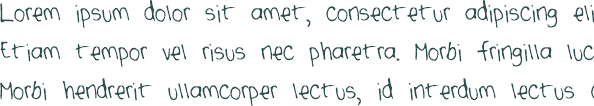 Lorem ipsum dolor sit amet, consectetur adipiscing eli
Etiam tempor vel risus nec pharetra. Morbi fringilla luc
Morbi hendrerit ullamcorper lectus, id interdum lectus